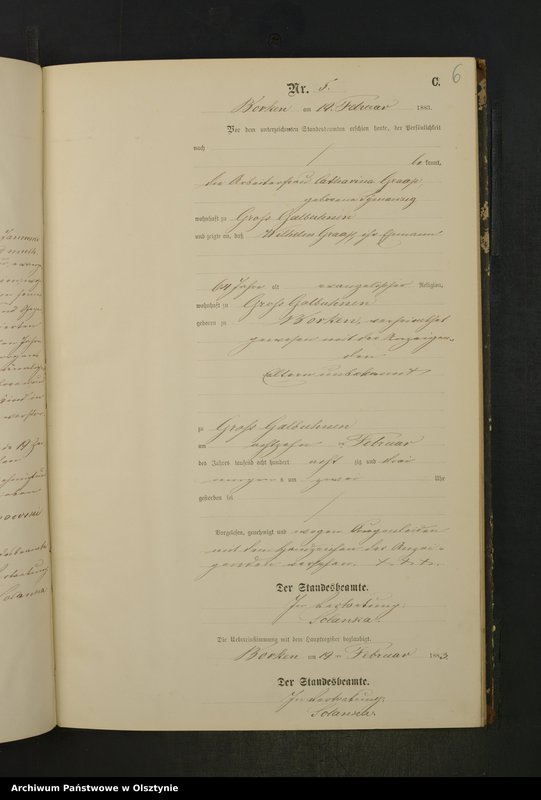 6
C.
Nr. 5.
Borken am 19. Februar 1883.
Vor dem unterzeichneten Standesbeamten erschien heute, der Persönlichkeit
nach
be kannt,
die Arbeiterfrau Catharina
geborene
wohnhaft zu Groß Galbuhnen
und zeigte an, daß ihr Ehmann
64 Jahre alt evangelischer Religion,
wohnhaft zu Groß Galbuhnen
geboren zu Borken, verheirathet
gewesen mit der Anzeigen-
den
Eltern unbekannt
zu Groß Galbuhnen
am achtzehn Februar
des Jahres tausend acht hundert acht zig und drei
morgens um zwei Uhr
gestorben sei
Vorgelesen, genehmigt und wegen Augenleiden
mit den Handzeichen der Anzei-
genden versehen. + + +.
Der Standesbeamte.
In Vertretung.
Solanka.
Die Uebereinstimmung mit dem Hauptregister beglaubigt.
Borken am 19. Februar 1883.
Der Standesbeamte.
In Vertretung.
Solanka.
Archiwum Państwowe w Olsztynie